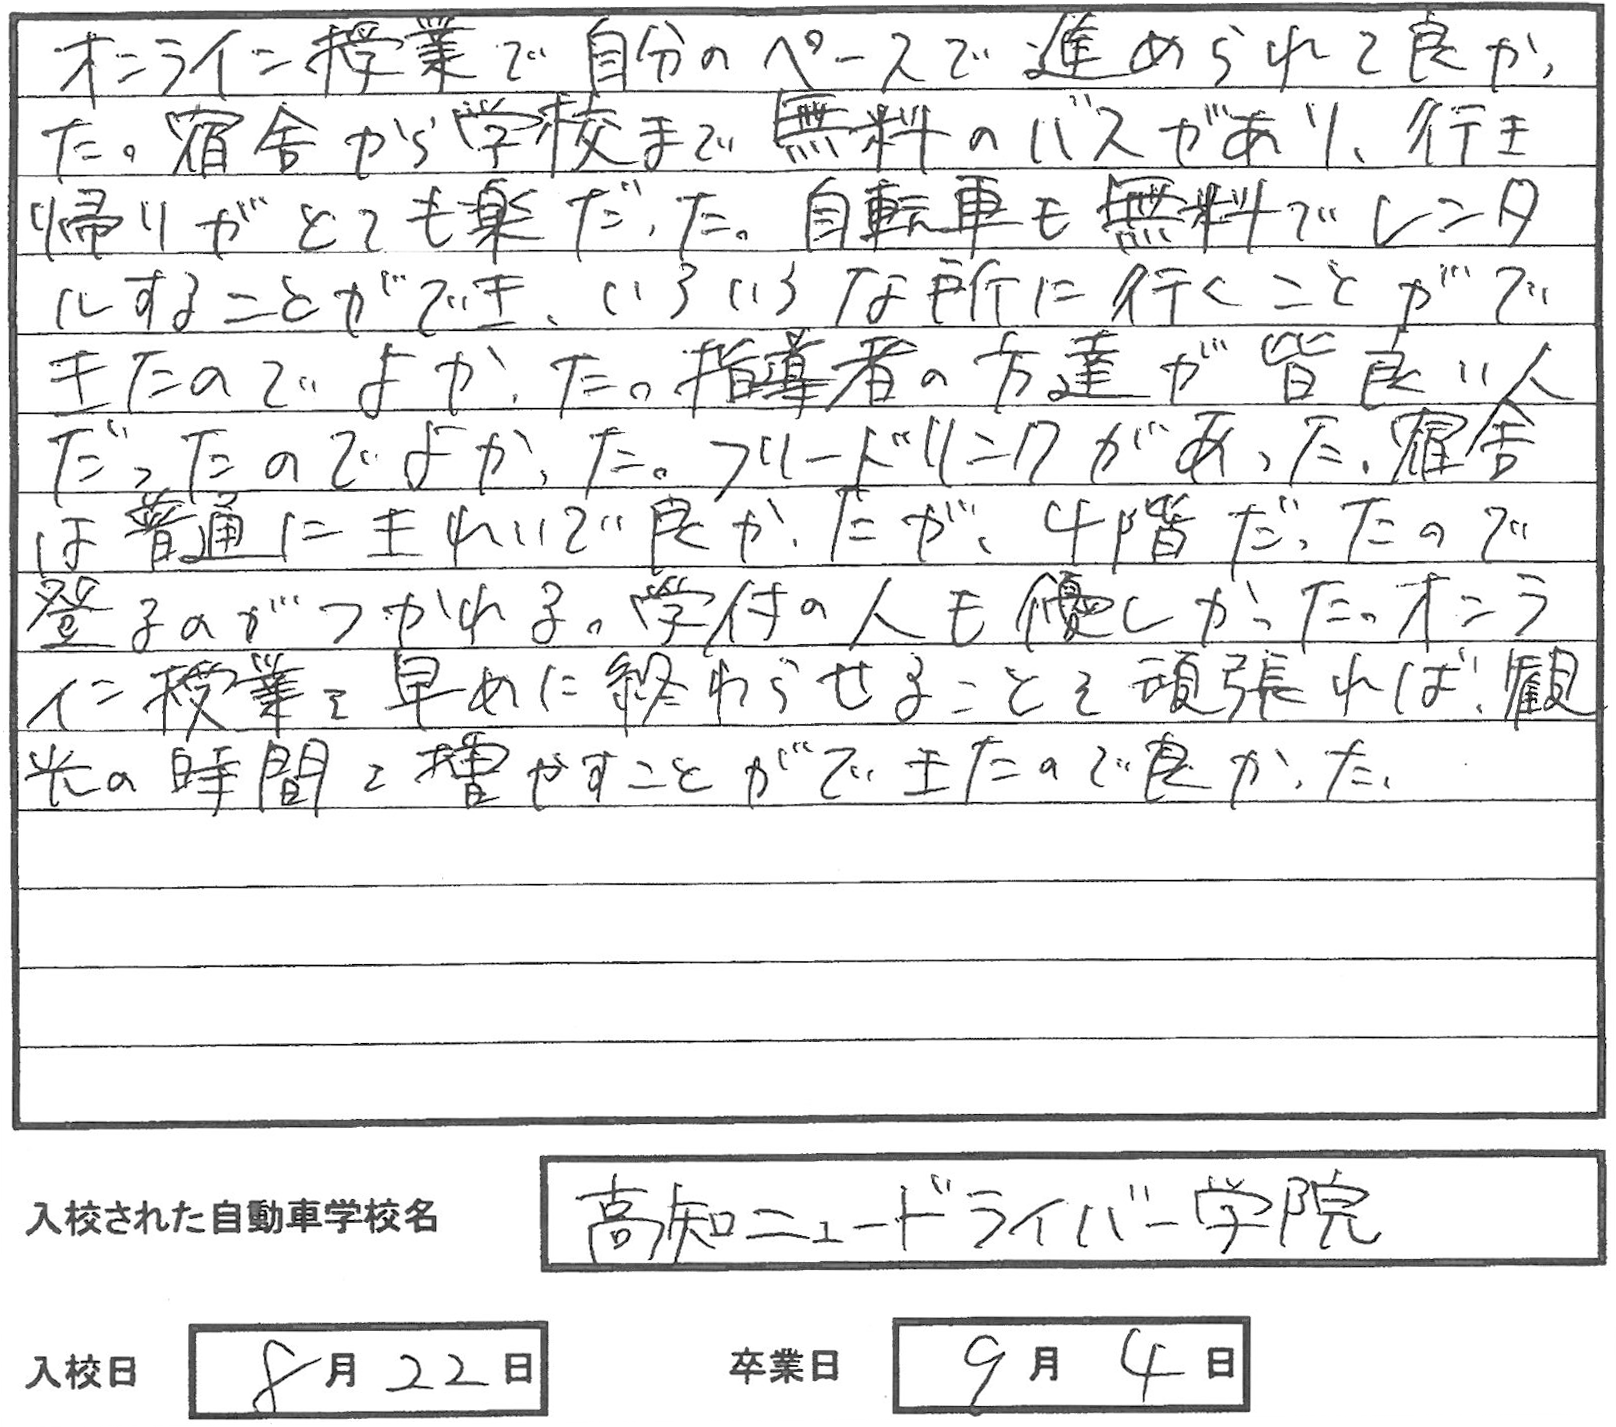 オンライン授業で自分のペースで進められて良かっ
た。宿舎から学校まで無料のバスがあり、行き
帰りがとても楽だった。自転車も無料でレンタ
ルすることができ、いろいろな所に行くことがで
きたのでよかった。指導者の方達が皆良い人
だったのでよかった。フリードリンクがあった、宿舎
は普通にきれいで良かったが、4階だったので
登るのがつかれる。学付の人も優しかった。オンラ
イン授業を早めに終わらせることを頑張れば、観
光の時間を増やすことができたので良かった、
入校された自動車学校名 高知ニュードライバー学院
入校日 8月22日 卒業日 9月4日